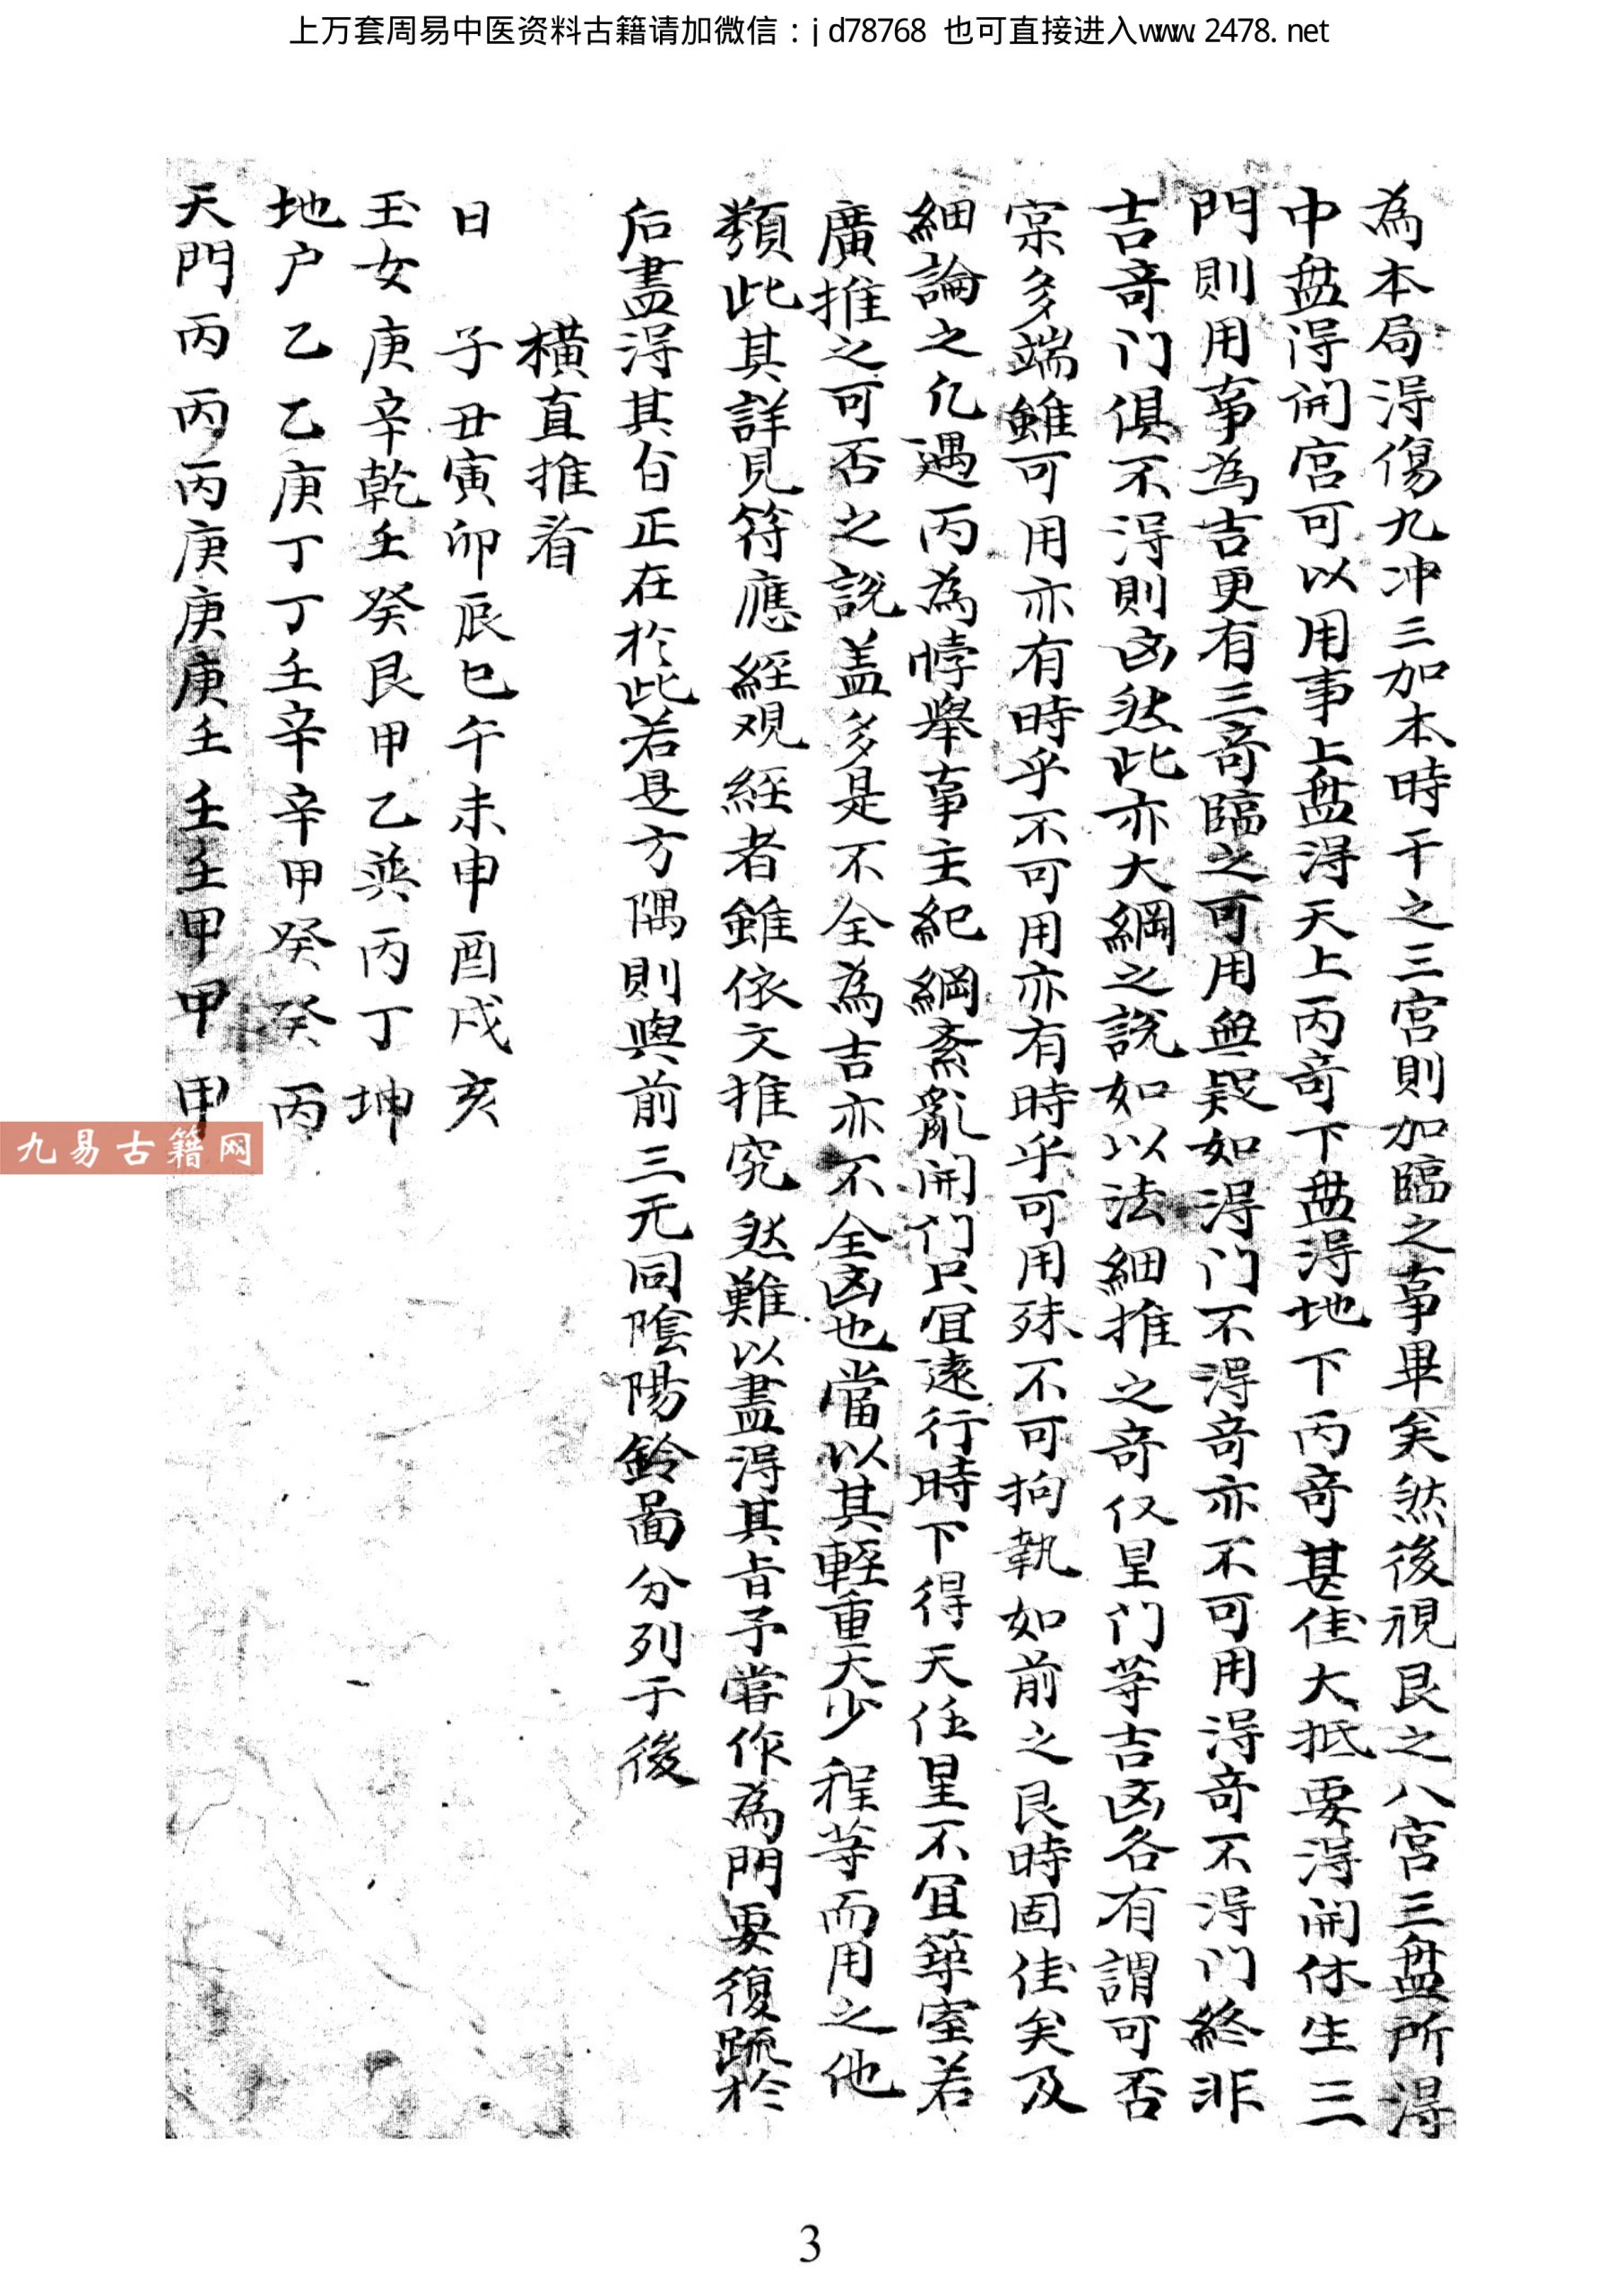 上万套周易中医资料古籍请加微信：jd78768 也可直接进入www.2478.net
為本局淂傷九冲三加本時干之三宮則加臨之事畢矣然後視艮之八宮三盘所淂
中盘淂開宮可以用事上盘淂天上丙竒下盘淂地下丙竒甚佳大抵要淂開休生三
門則用事為吉更有三竒臨之可用無疑如淂门不淂竒亦不可用淂竒不淂门終非
吉竒门俱不淂則凶然此亦大綱之說如以法細推之竒仪星门等吉凶各有謂可否
寀多端雖可用亦有時乎不可用亦有時乎可用殊不可拘執如前之艮時固佳矣及
細論之凡遇丙為悖舉事主紀綱紊亂開门只宜遠行時下得天任星不宜築室若
廣推之可否之說盖多是不全為吉亦不全凶也當以其輕重大少程等而用之他
類此其詳見符應經观經者雖依文推究然難以盡淂其旨予嘗作為門要復䟽於
后盡淂其旨正在於此若是方隅則與前三元同陰陽鈴啚分列于後
橫直推看
日 子丑寅卯辰巳午未申酉戌亥
玉女 庚辛乾壬癸艮甲乙巽丙丁坤
地户 乙乙庚丁丁壬辛辛甲癸癸丙
天門 丙丙丙庚庚庚壬壬壬甲甲甲
九易古籍网
3